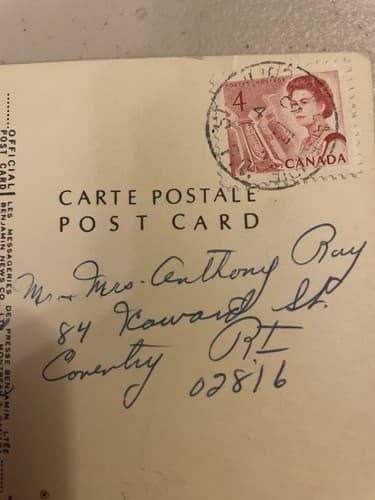 POSTES POSTAGE
4
CANADA
CARTE POSTALE
POST CARD
Mr & Mrs. Anthony Ray
84 Howard St.
Coventry R I
02816
OFFICIAL
POST CARD
LES MESSAGERIES DES PRESSE BENJAMIN, LTÉE
BENJAMIN NEWS CO. LTD MONTREAL